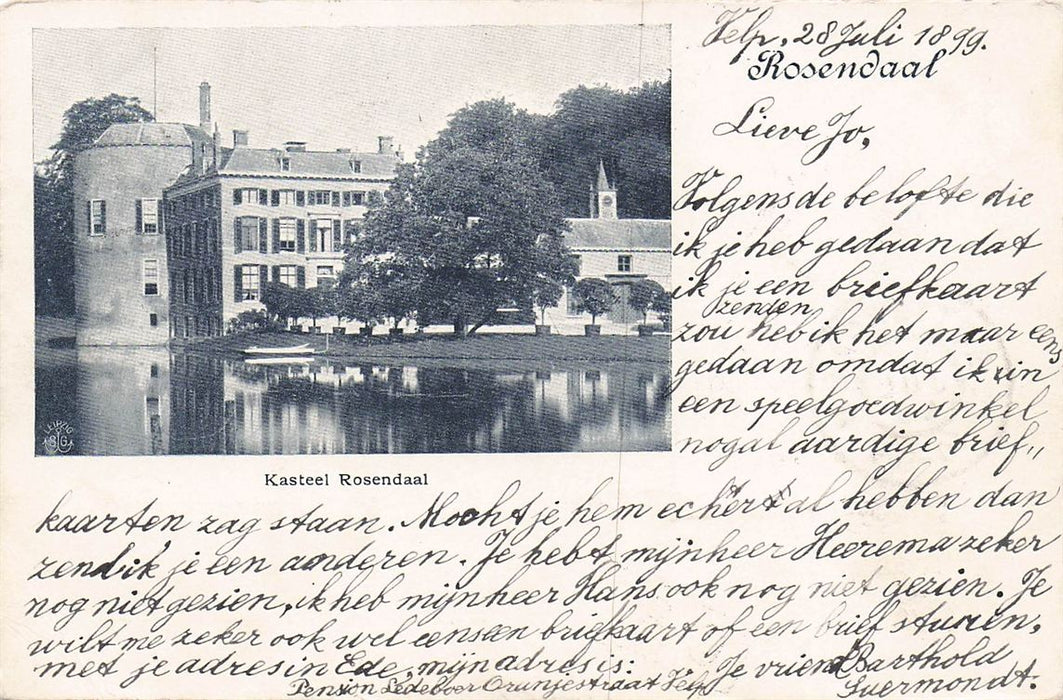 Velp, 28 Juli 1899.
Rosendaal
Lieve Jo,
Volgens de belofte die
ik je heb gedaan dat
ik je een briefkaart
zenden
zou heb ik het maar eens
gedaan omdat ik in
een speelgoedwinkel
nogal aardige brief„
LEIPZIG
Kasteel Rosendaal
kaarten zag staan. Mocht je hem echter al hebben dan
zend ik je een anderen. Je hebt mijnheer Heerema zeker
nog niet gezien, ik heb mijnheer Hans ook nog niet gezien. Je
wilt me zeker ook wel eens een briefkaart of een brief sturen,
met je adres in Ede, mijn adres is: Je vriend Barthold
Pension Ledeboer Oranjestraat Velp Suermondt.